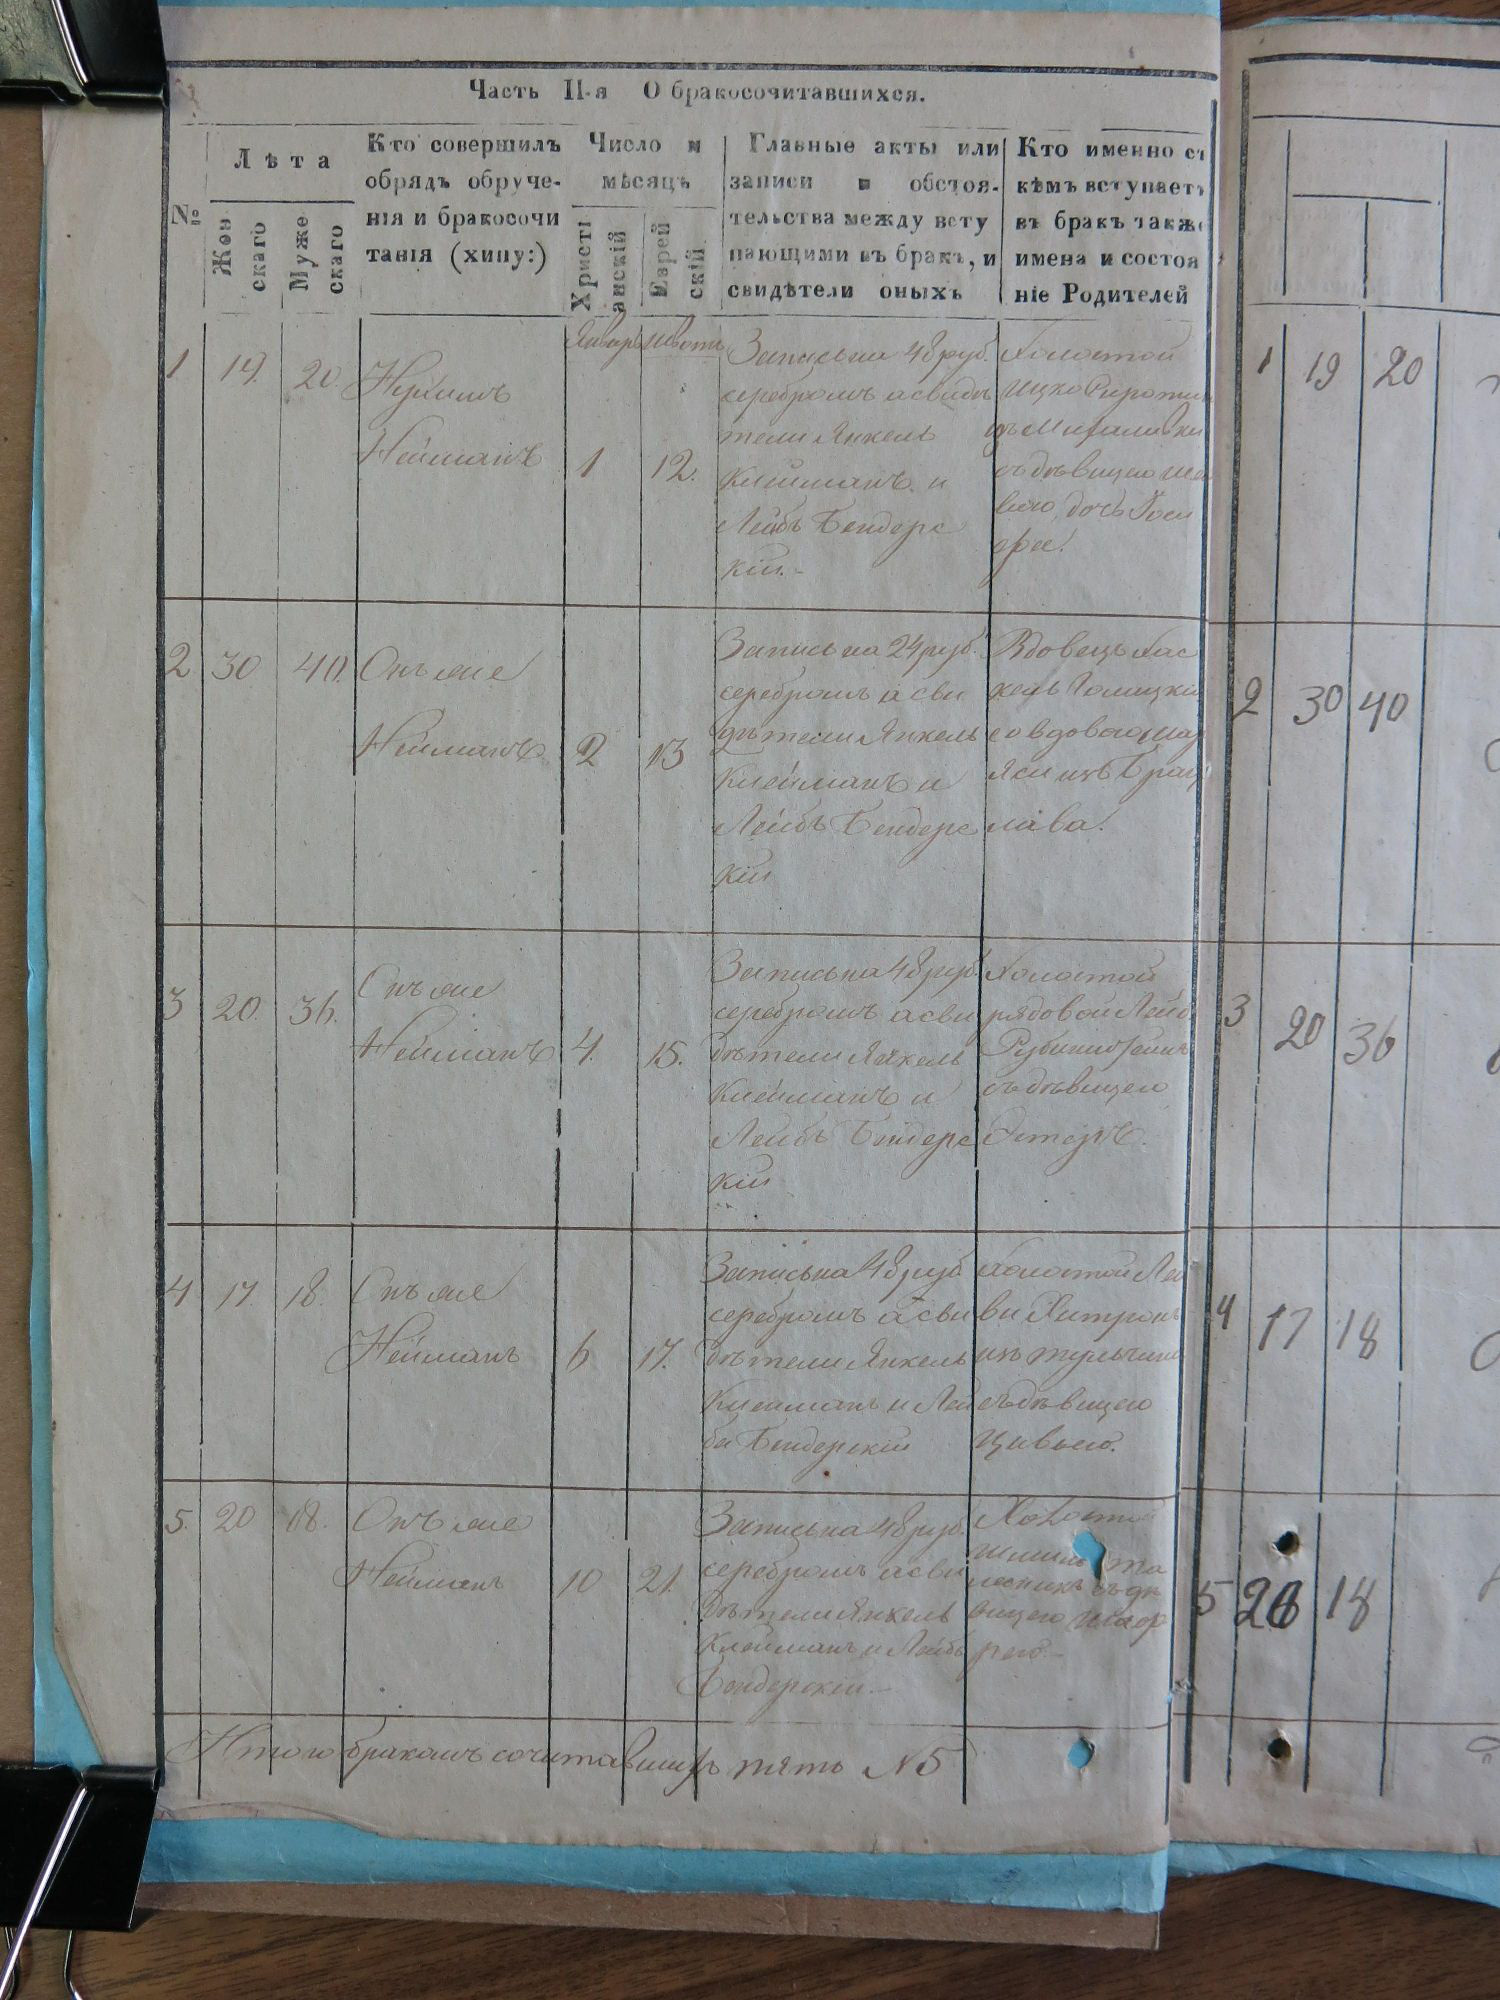 Часть II-я О бракосочитавшихся.
№
Лѣта
Жен
скаго
Муже
скаго
Кто совершилъ
обрядъ обруче-
нія и бракосочи
танія (хипу:)
Число и
мѣсяцъ
Христі
анскій
Еврей
скій
Главные акты или
записи и обстоя-
тельства между всту
пающими въ бракъ, и
свидѣтели оныхъ
Кто именно съ
кѣмъ вступаетъ
въ бракъ также
имена и состоя
ніе Родителей
1 19. 20.
Нейманъ
1 12.
Запись на 48 руб.
серебромъ а свидѣ
тели Янкель
Клейманъ и
Лейбъ Бендерс
кій.-
Холостой
Ицко
съ дѣвицею
дочь
2 30 40.
Онъ же
Нейманъ
2 13
Запись на 24 руб.
серебромъ а сви
дѣтели Янкель
Клейманъ и
Лейбъ Бендерс
кій
Вдовецъ Хас
кель
со вдовою
изъ Брац
лава.
3 20. 36.
Онъ же
Нейманъ
4. 15.
Запись на 48 руб
серебромъ а сви
дѣтели Янкель
Клейманъ и
Лейбъ Бендерс
кій
Холостой
рядовой Лейб
съ дѣвицею
4 17. 18.
Онъ же
Нейманъ
6 17.
Запись на 48 руб
серебромъ а сви
дѣтели Янкель
Клейманъ и Лей
ба Бендерскій
Холостой Ле
ви
изъ Тульчина
съ дѣвицею
Цивьею.
5. 20 18.
Онъ же
Нейманъ
10 21.
Запись на 48 руб.
серебромъ а сви
дѣтели Янкель
Клейманъ и Лейбъ
Бендерскій.-
Холостой
съ дѣ
вицею
Итого бракомъ сочитавшихъ пять №5
1 19 20
2 30 40
3 20 36
4 17 18
5 20 18